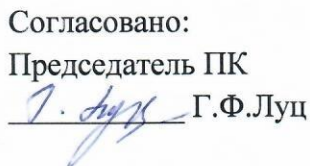 Согласовано:
Председатель ПК
Г.Ф.Луц